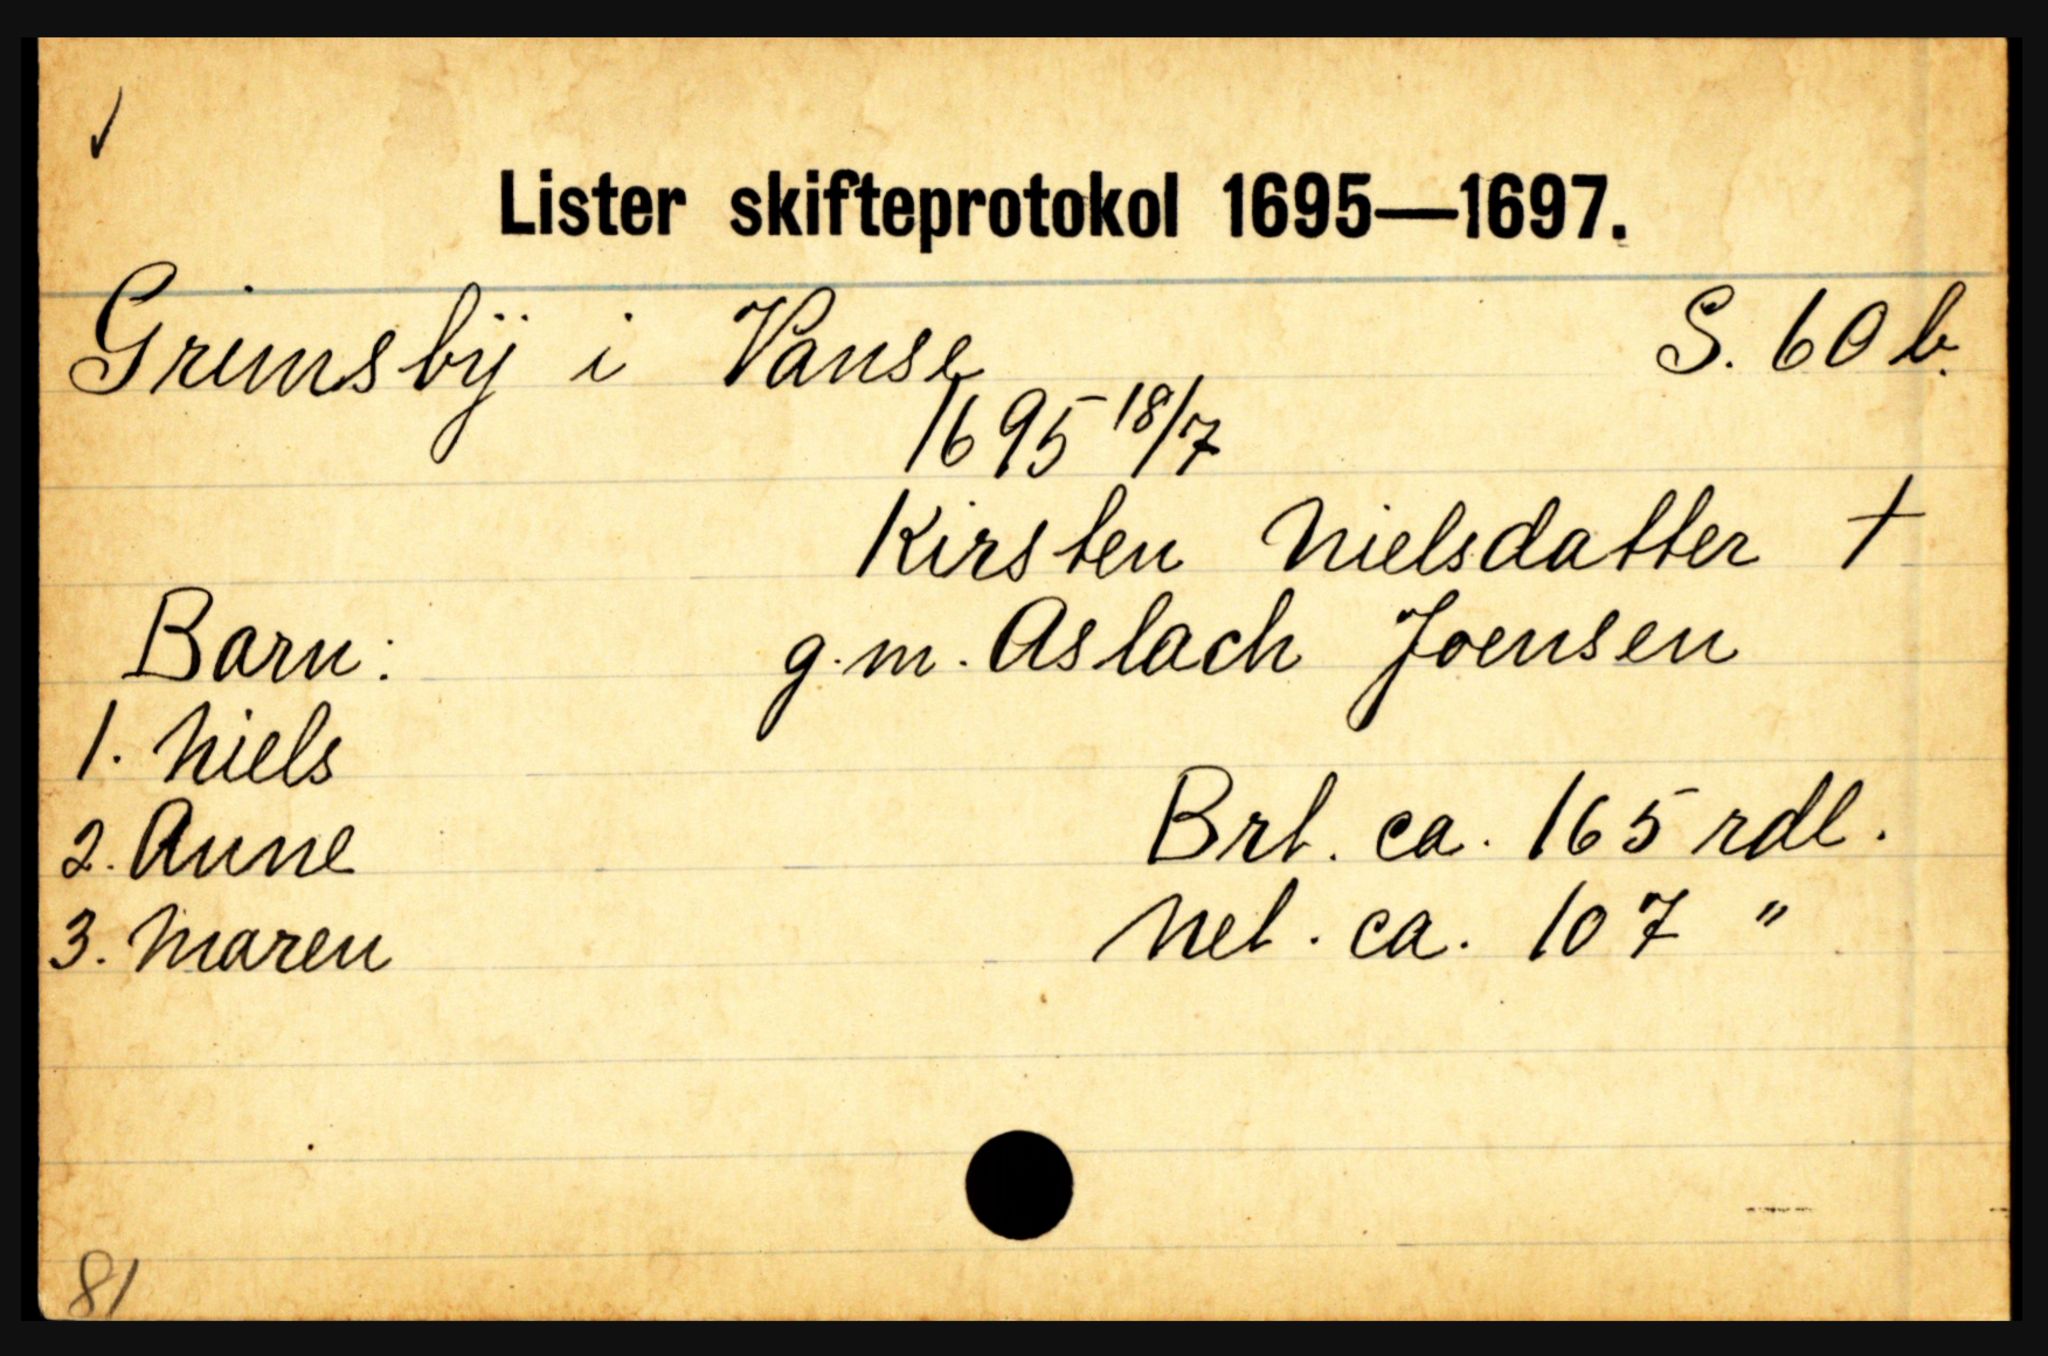 ✓
Lister skifteprotokol 1695—1697.
Grimsbÿ i Vanse S. 60 b.
1695 18/7
Kirsten Nielsdatter †
Barn: g.m. Aslach Joensen
1. Niels
2. Anne Brt. ca. 165 rdl.
3. Maren Net. ca. 107 "
81